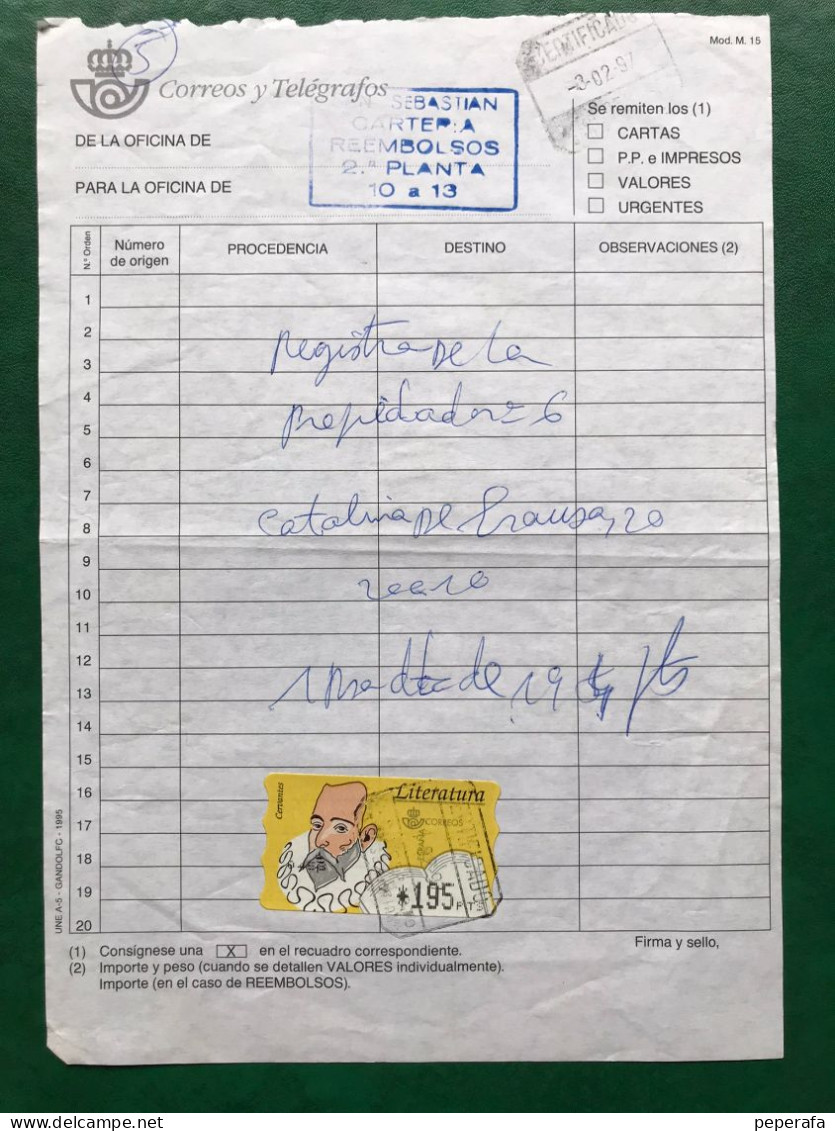 5
Mod. M. 15
CERTIFICADO
-3-02-97
Correos y Telégrafos
SEBASTIAN
CARTERIA
REEMBOLSOS
2.ª PLANTA
10 a 13
DE LA OFICINA DE
PARA LA OFICINA DE
Se remiten los (1)
CARTAS
P.P. e IMPRESOS
VALORES
URGENTES
N.º Orden
Número
de origen
PROCEDENCIA
DESTINO
OBSERVACIONES (2)
1
2
3
4
5
6
7
8
9
10
11
12
13
14
15
16
17
18
19
20
Registra De La
Propidad nº 6
Catalina De Erauso, 20
Cervantes
Literatura
CORREOS
ESPAÑA
*195 PTS
UNE A-5 - GANDOLFC - 1995
(1) Consígnese una X en el recuadro correspondiente.
(2) Importe y peso (cuando se detallen VALORES individualmente).
Importe (en el caso de REEMBOLSOS).
Firma y sello,
peperafa